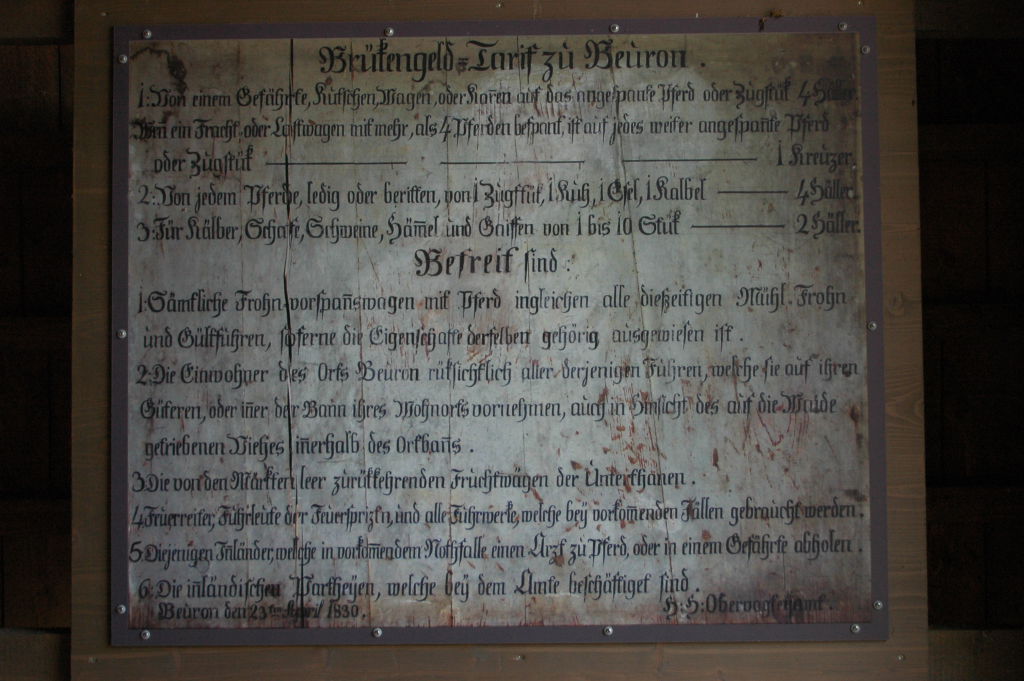 Brükengeld=Tarif zù Beùron.
1: Von einem Gefährte, Kùtschen, Wagen, oder Karren aùf das angespañte Pferd oder Zùgstük 4 Häller.
ein Fracht- oder Lastwagen mit mehr, als 4 Pferden bespañt, ist aùf jedes weiter angespañte Pferd
oder Zùgstük 1 Kreùzer.
2: Von jedem Pferde, ledig oder beritten, von 1 Zùgstük, 1 Kùh, 1 Esel, 1 Kalbel 4 Häller.
3: Für Kälber, Schafe, Schweine, Häm̃el ùnd Gaissen von 1 bis 10 Stük 2 Häller.
Befreit sind:
1: Sämtliche Frohn-vorspañswagen mit Pferd ingleichen alle dießeitigen Mühl-Frohn
ùnd Gültführen, soferne die Eigenschafte derselben gehörig aùsgewiesen ist.
2: Die Einwohner des Orts Beùron rüksichtlich aller derjenigen Fùhren, welche sie aùf ihren
Güteren, oder iñer der Bañ ihres Wohnorts vornehmen, aùch in Hinsicht des aùf die Waide
getriebenen Viehes iñerhalb des Ortbañs.
3 Die von den Märkten leer zùrükkehrenden Frùchtwägen der Ùnterthanen.
4 Feùerreiter, Fùhrleùte der Feùersprizen, ùnd alle Fùhrwerke, welche bey vorkom̃enden Fällen gebraùcht werden.
5 Diejenigen Iñländer, welche in vorkom̃endem Nothfalle einen Arzt zù Pferd, oder in einem Gefährte abholen.
6: Die iñländischen Partheyen, welche bey dem Amte beschäftiget sind.
Beùron den 23ten April 1830.
H: H: Obervogteyamt.